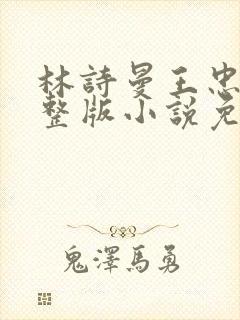 林詩曼王忠
整版小說免
鬼澤馬勇